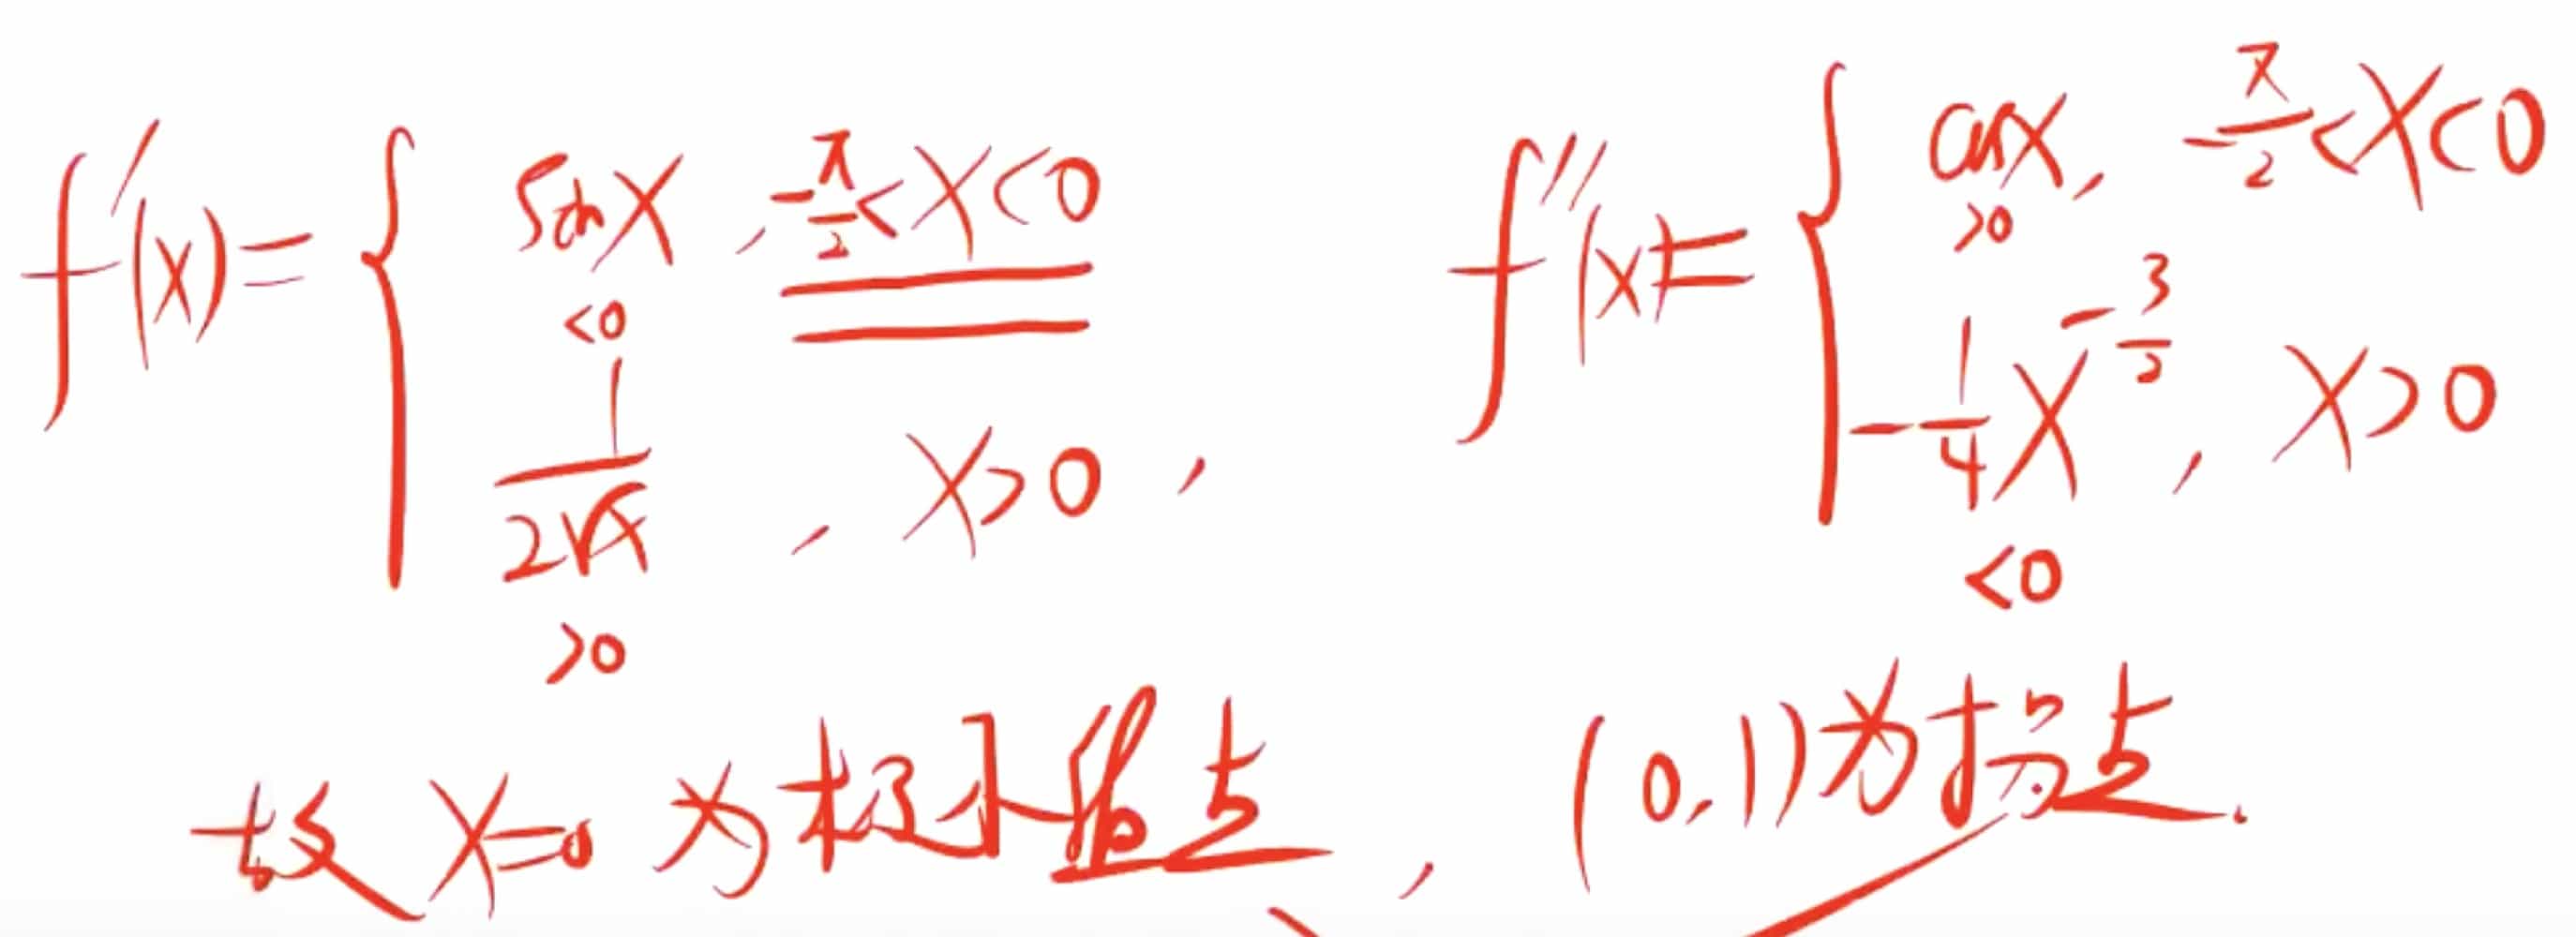 f'(x)= { sinx, -π/2<x<0 <0
1/(2√x), x>0, >0
f''(x)= { cosx, -π/2<x<0 >0
-1/4 x^(-3/2), x>0 <0
故x=0为极小值点, (0,1)为拐点.